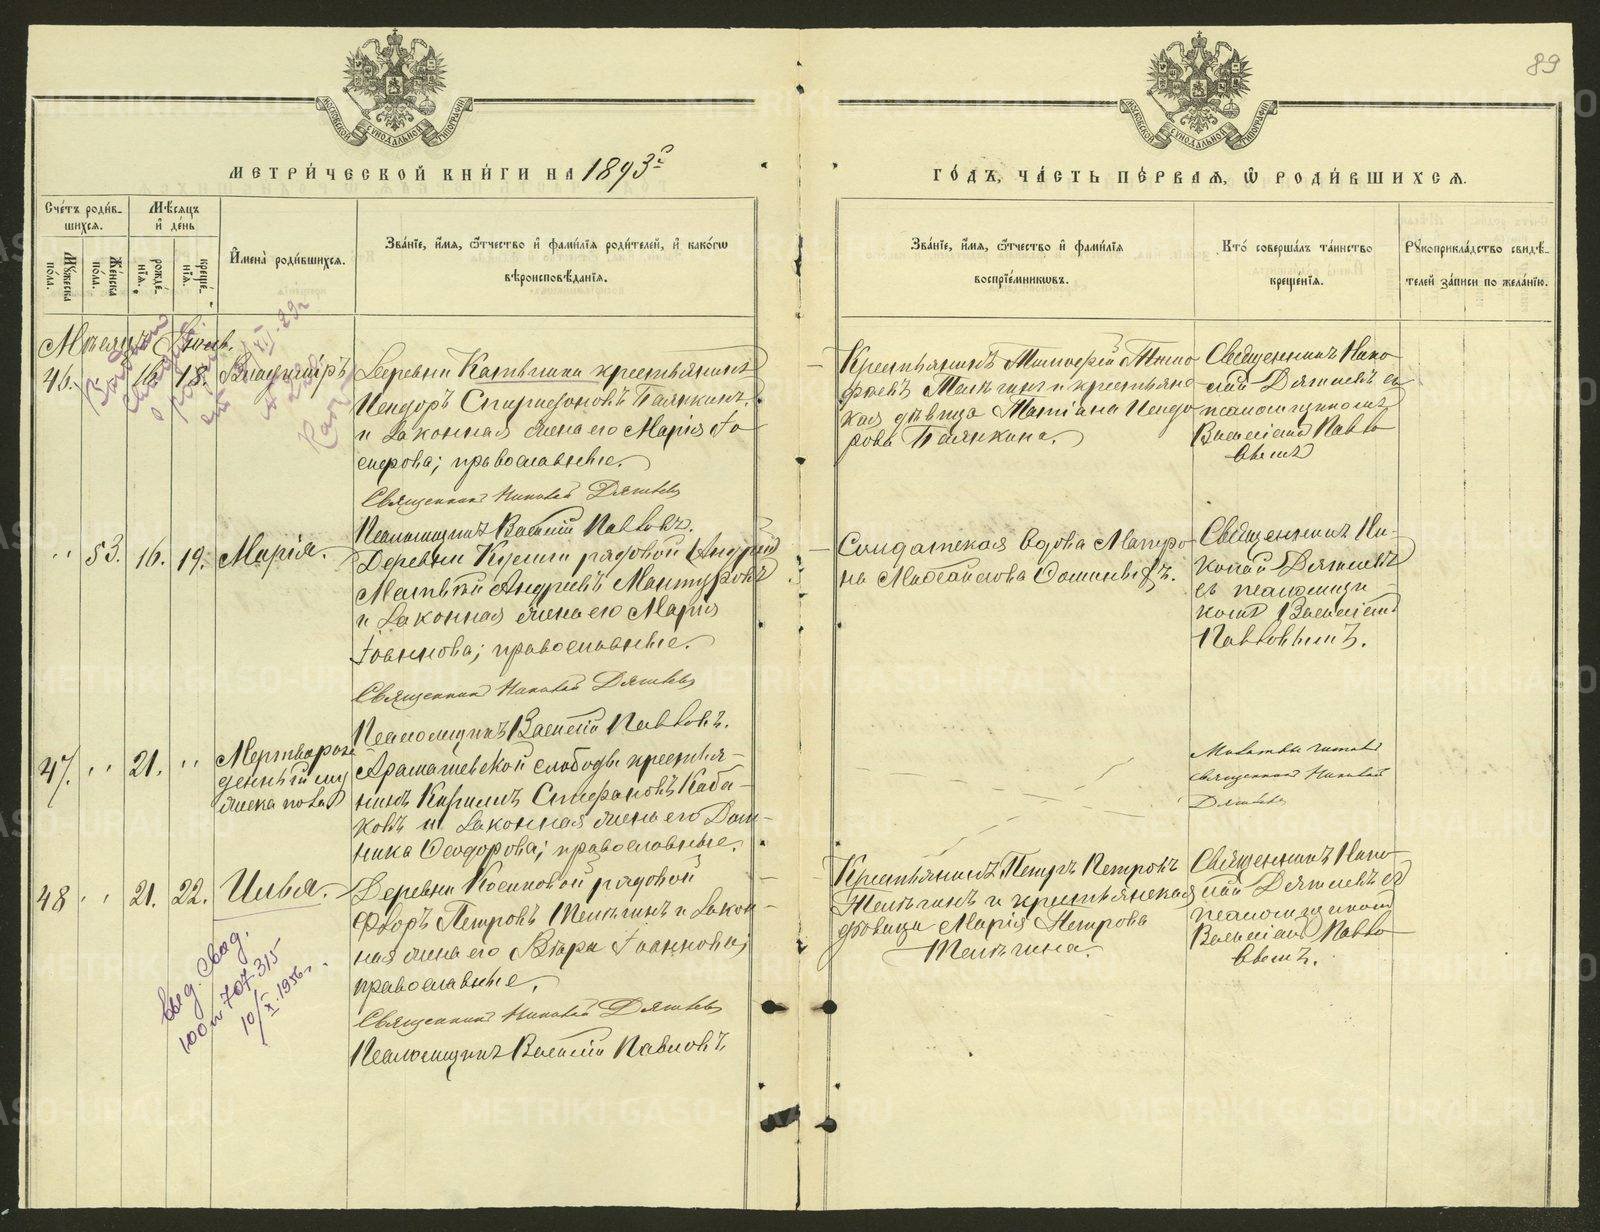 89
МЕТРИ́ЧЕСКОЙ КНИ́ГИ НА 1893 г.
ГО́ДЪ, ЧА́СТЬ ПЕ́РВАЯ, Ѡ РОДИ́ВШИХСЯ.
Сче́тъ роди́в-
шихся.
Му́жеска по́ла.
Же́нска по́ла.
Мѣ́сяцъ и҆ де́нь
рожде́-
нїѧ.
креще́-
нїѧ.
И҆мена̀ роди́вшихся.
Зва́нїе, и҆́мя, ѻ҆́тчество и҆ фами́лїя роди́телей, и҆ како́гѡ
вѣроисповѣ́данїя.
Зва́нїе, и҆́мя, ѻ҆́тчество и҆ фами́лїя
воспрїе́мникѡвъ.
Кто̀ соверша́лъ та́инство
креще́нїя.
Рꙋкоприкла́дство свидѣ́-
телей за́писи по жела́нїю.
46. 16. 18. Владимiръ
Деревни крестьянинъ
Ѳеодоръ Спиридоновъ
и законная жена его Марiя Iо
сифова; православные.
Священникъ Николай Дягилевъ
Псаломщикъ Василiй Павловъ.
Крестьянинъ Тимофей Тимо
фѣевъ и крестьянс
кая дѣвица Татiана Ѳеодо
рова
Священникъ Нико
лай Дягилевъ съ
псаломщикомъ
Василiемъ Павло
вымъ
" 53. 16. 19. Марiя.
Деревни рядовой (Андрей)
Матвѣй Андреевъ Мантуровъ
и законная жена его Марiя
Iоаннова; православные.
Священникъ Николай Дягилевъ
Псаломщикъ Василiй Павловъ.
Солдатская вдова Матро
на
Священникъ Ни-
колай Дягилевъ
съ псаломщи
комъ Василiемъ
Павловымъ.
47. " 21. " Мертворож
денный му
жеска пола
Арамашевской слободы крестья-
нинъ Кириллъ Стефановъ Каба-
ковъ и законная жена его Дом-
ника Ѳеодорова; православные.
Молитвы читалъ
священникъ Николай
Дягилевъ
48 " 21. 22. Илья.
Деревни Косиковой рядовой
Ѳедоръ Петровъ Телѣгинъ и закон-
ная жена его Вѣра Iоаннова;
православные.
Священникъ Николай Дягилевъ
Псаломщикъ Василiй Павловъ
Крестьянинъ Петръ Петровъ
Телѣгинъ и крестьянская
дѣвица Марiя Петрова
Телѣгина.
Священникъ Нико
лай Дягилевъ съ
псаломщикомъ
Василiемъ Павло
вымъ.
выд. свид.
юо № 707315
10/X.1956 г.
METRIKI.GASO-URAL.RU